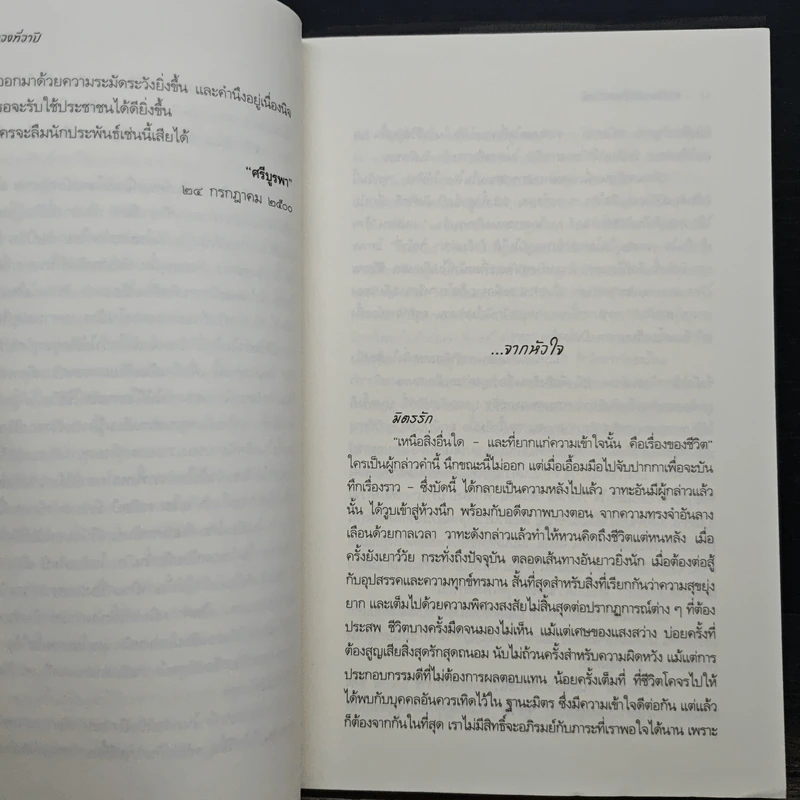 วงที่วาปี
ออกมาด้วยความระมัดระวังยิ่งขึ้น และคำนึงอยู่เนื่องนิจ
รอจะรับใช้ประชาชนได้ดียิ่งขึ้น
ครจะลืมนักประพันธ์เช่นนี้เสียได้
"ศรีบูรพา"
๒๔ กรกฎาคม ๒๕๐๐
...จากหัวใจ
มิตรรัก
"เหนือสิ่งอื่นใด - และที่ยากแก่ความเข้าใจนั้น คือเรื่องของชีวิต"
ใครเป็นผู้กล่าวคำนี้ นึกขณะนี้ไม่ออก แต่เมื่อเอื้อมมือไปจับปากกาเพื่อจะบัน
ทึกเรื่องราว - ซึ่งบัดนี้ ได้กลายเป็นความหลังไปแล้ว วาทะอันมีผู้กล่าวแล้ว
นั้น ได้วูบเข้าสู่ห้วงนึก พร้อมกับอดีตภาพบางตอน จากความทรงจำอันลาง
เลือนด้วยกาลเวลา วาทะดังกล่าวแล้วทำให้หวนคิดถึงชีวิตแต่หนหลัง เมื่อ
ครั้งยังเยาว์วัย กระทั่งถึงปัจจุบัน ตลอดเส้นทางอันยาวยิ่งนัก เมื่อต้องต่อสู้
กับอุปสรรคและความทุกข์ทรมาน สั้นที่สุดสำหรับสิ่งที่เรียกกันว่าความสุขยุ่ง
ยาก และเต็มไปด้วยความพิศวงสงสัยไม่สิ้นสุดต่อปรากฏการณ์ต่าง ๆ ที่ต้อง
ประสพ ชีวิตบางครั้งมืดจนมองไม่เห็น แม้แต่เศษของแสงสว่าง บ่อยครั้งที่
ต้องสูญเสียสิ่งสุดรักสุดถนอม นับไม่ถ้วนครั้งสำหรับความผิดหวัง แม้แต่การ
ประกอบกรรมดีที่ไม่ต้องการผลตอบแทน น้อยครั้งเต็มที่ ที่ชีวิตโคจรไปให้
ได้พบกับบุคคลอันควรเทิดไว้ใน ฐานะมิตร ซึ่งมีความเข้าใจดีต่อกัน แต่แล้ว
ก็ต้องจากกันในที่สุด เราไม่มีสิทธิ์จะอภิรมย์กับภาระที่เราพอใจได้นาน เพราะ